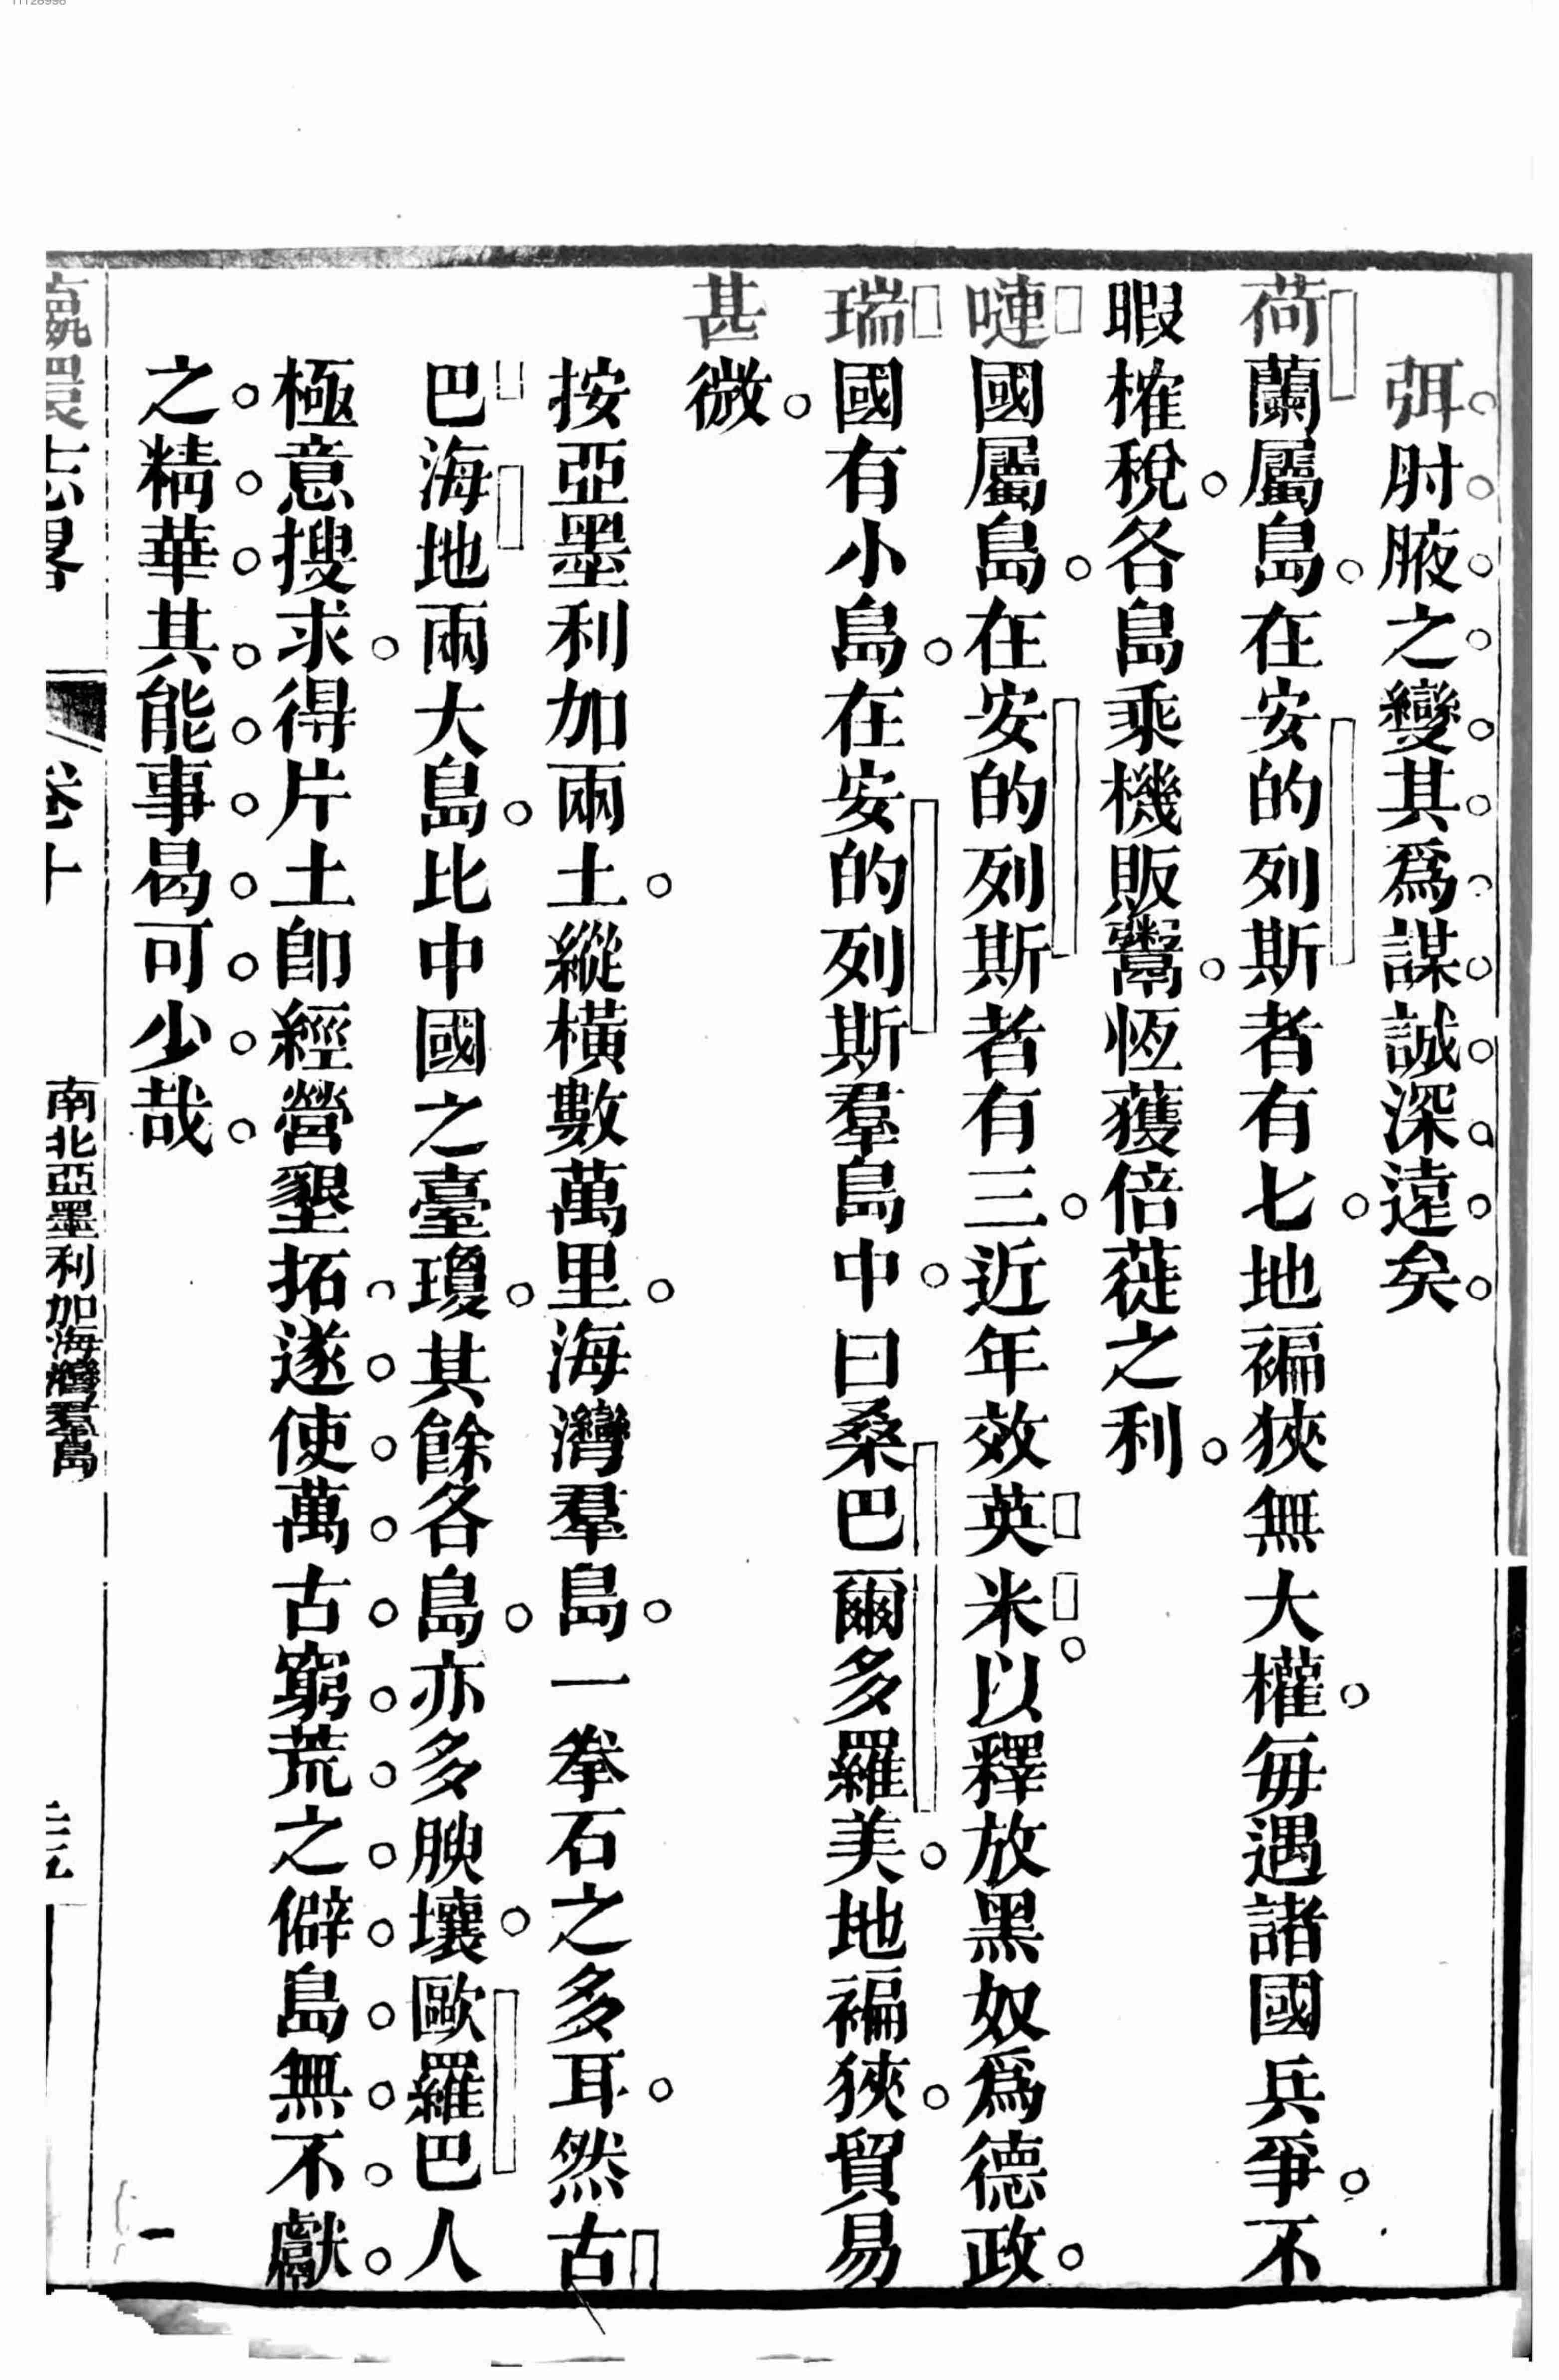 弭肘腋之變其爲謀誠深遠矣。
荷蘭屬島。在安的列斯者有七。地褊狹無大權。每遇諸國兵爭。不
暇榷稅。各島乘機販鬻。恆獲倍蓰之利。
嗹國屬島。在安的列斯者有三。近年效英米。以釋放黑奴爲德政。
瑞國有小島。在安的列斯羣島中。曰桑巴爾多羅美。地褊狹。貿易
甚微。
按亞墨利加兩土。縱橫數萬里。海灣羣島。一拳石之多耳。然古
巴海地兩大島。比中國之臺瓊。其餘各島。亦多腴壤。歐羅巴人
極意搜求。得片土卽經營墾拓。遂使萬古窮荒之僻島無不獻
之精華其能事曷可少哉
瀛環志畧
卷十
南北亞墨利加海灣羣島